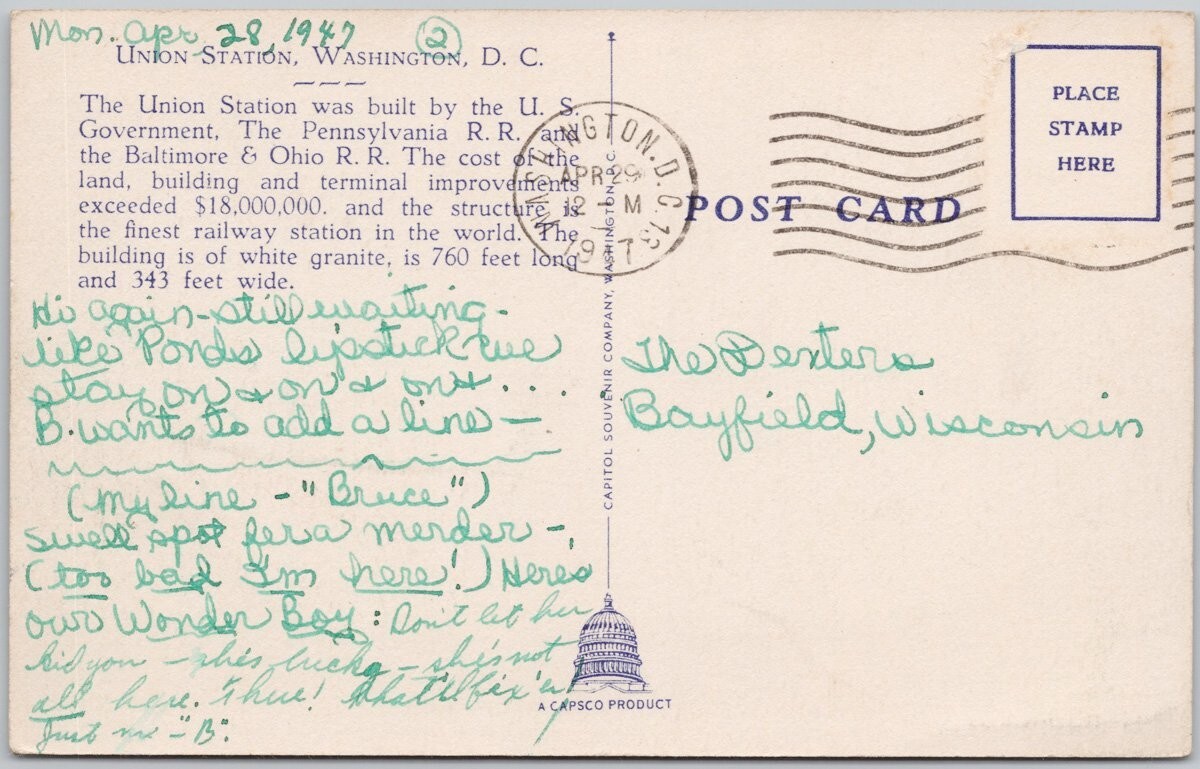 Mon. Apr. 28, 1947 (2)
UNION STATION, WASHINGTON, D. C.
The Union Station was built by the U. S.
Government, The Pennsylvania R. R. and
the Baltimore & Ohio R. R. The cost of the
land, building and terminal improvements
exceeded $18,000,000. and the structure is
the finest railway station in the world. The
building is of white granite, is 760 feet long
and 343 feet wide.
Hi again - still waiting -
like Ponds lipstick we
stay on & on & on & . . . .
B. wants to add a line —
(My line - "Bruce")
swell spot fer a merder -
(too bad I'm here!) Here's
our Wonder Boy: Don't let her
kid you - she's lucky - she's not
all here. That'll fix 'er!
Just me - "B".
WASHINGTON, D.C. 13
APR 29
12 - M
1947
CAPITOL SOUVENIR COMPANY, WASHINGTON, D. C.
A CAPSCO PRODUCT
POST CARD
PLACE
STAMP
HERE
The Dexters
Bayfield, Wisconsin